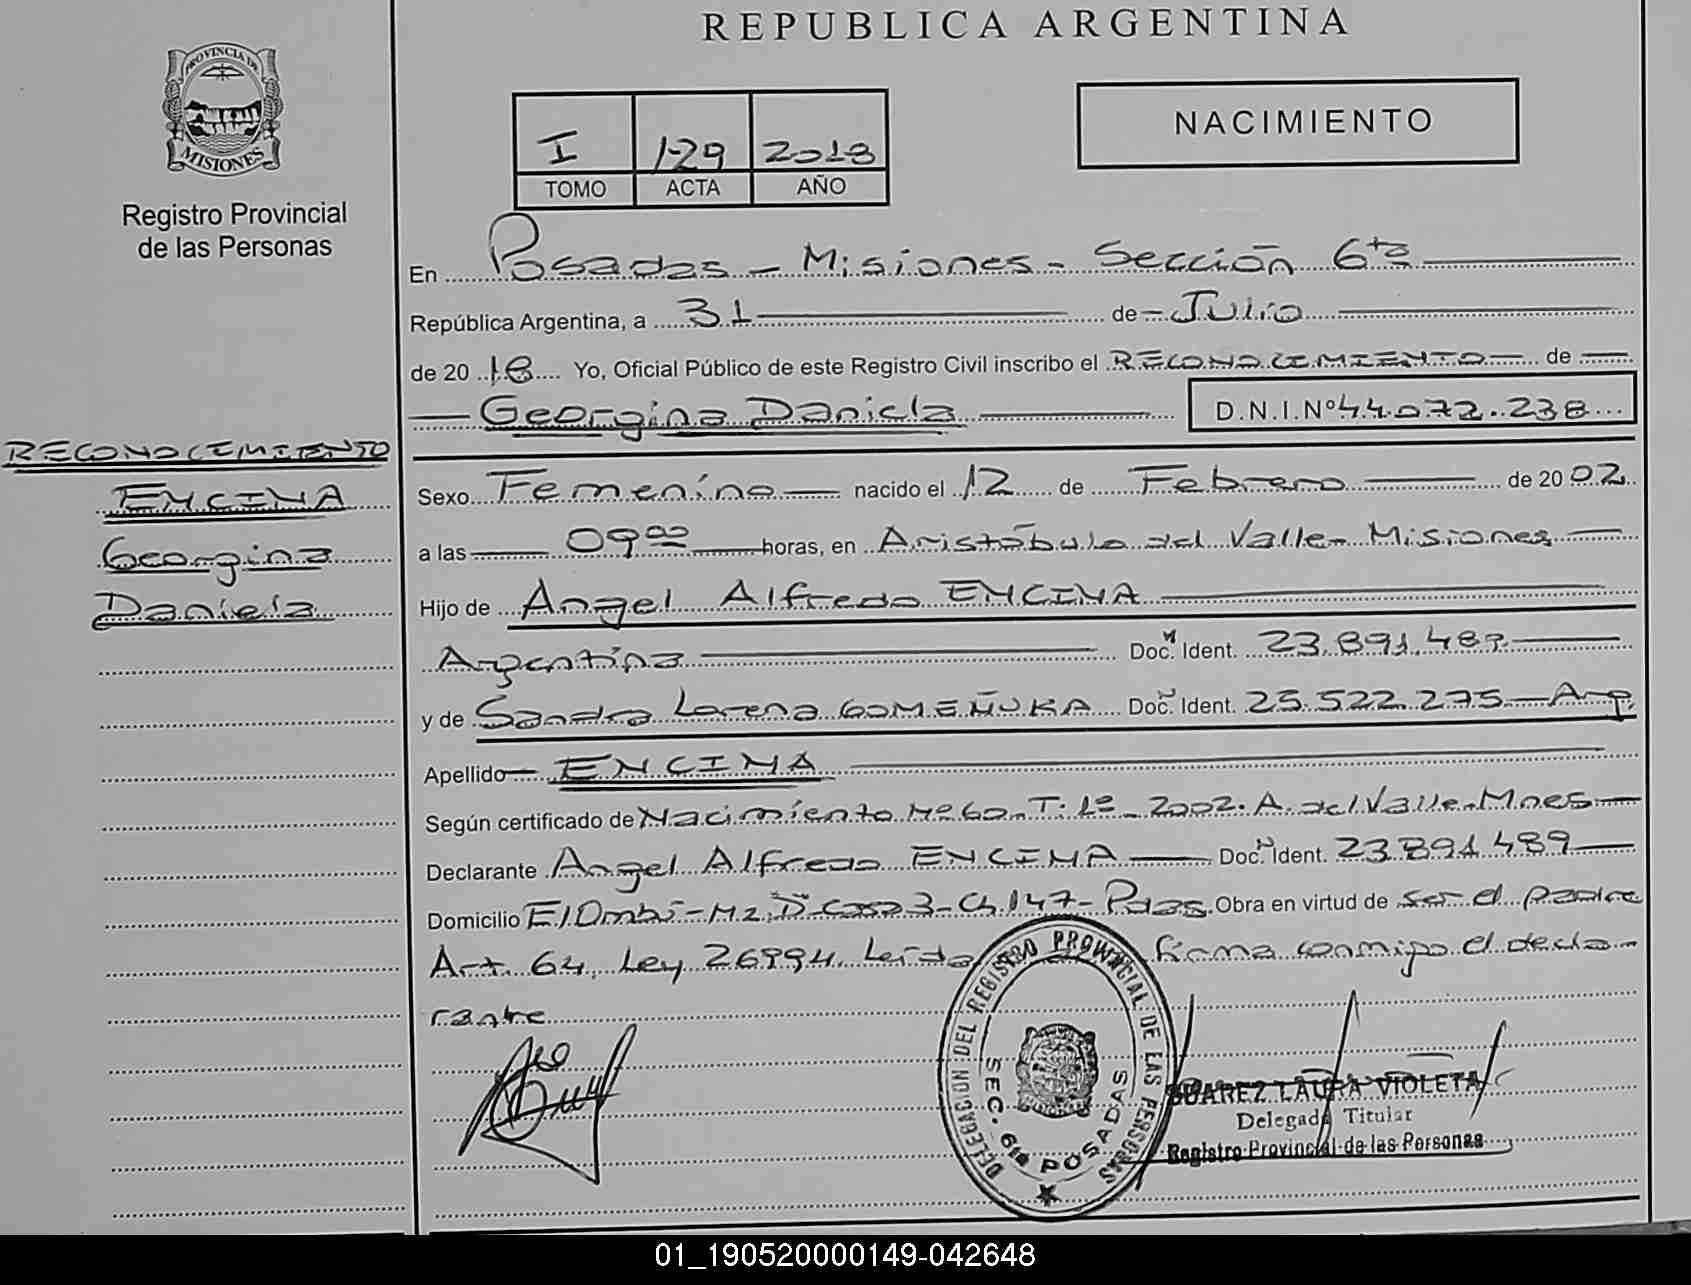 REPUBLICA ARGENTINA
PROVINCIA DE
MISIONES
Registro Provincial
de las Personas
I 129 2018
TOMO ACTA AÑO
NACIMIENTO
En Posadas - Misiones - Sección 6ta
República Argentina, a 31 de Julio
de 2018 Yo, Oficial Público de este Registro Civil inscribo el RECONOCIMIENTO de
Georgina Daniela D.N.I.Nº 44.072.238
RECONOCIMIENTO
ENCINA
Georgina
Daniela
Sexo Femenino nacido el 12 de Febrero de 2002
a las 09 00 horas, en Aristóbulo del Valle - Misiones
Hijo de Angel Alfredo ENCINA
Argentina Doc. Ident. 23.891.489
y de Sandra Lorena GOMEÑUKA Doc. Ident. 25.522.275 - Arg.
Apellido ENCINA
Según certificado de Nacimiento Nº 60 - T: 1º - 2002. A. del Valle - Mnes
Declarante Angel Alfredo ENCINA Doc. Ident. 23.891.489
Domicilio El Ombú - Mz. D - Casa 3 - Ch 147 - Pdas. Obra en virtud de ser el padre
Art. 64, Ley 26994. Leída firma conmigo el decla-
rante
DELEGACION DEL REGISTRO PROVINCIAL DE LAS PERSONAS
SEC. 6ta POSADAS
SUAREZ LAURA VIOLETA
Delegada Titular
Registro Provincial de las Personas
01_190520000149-042648